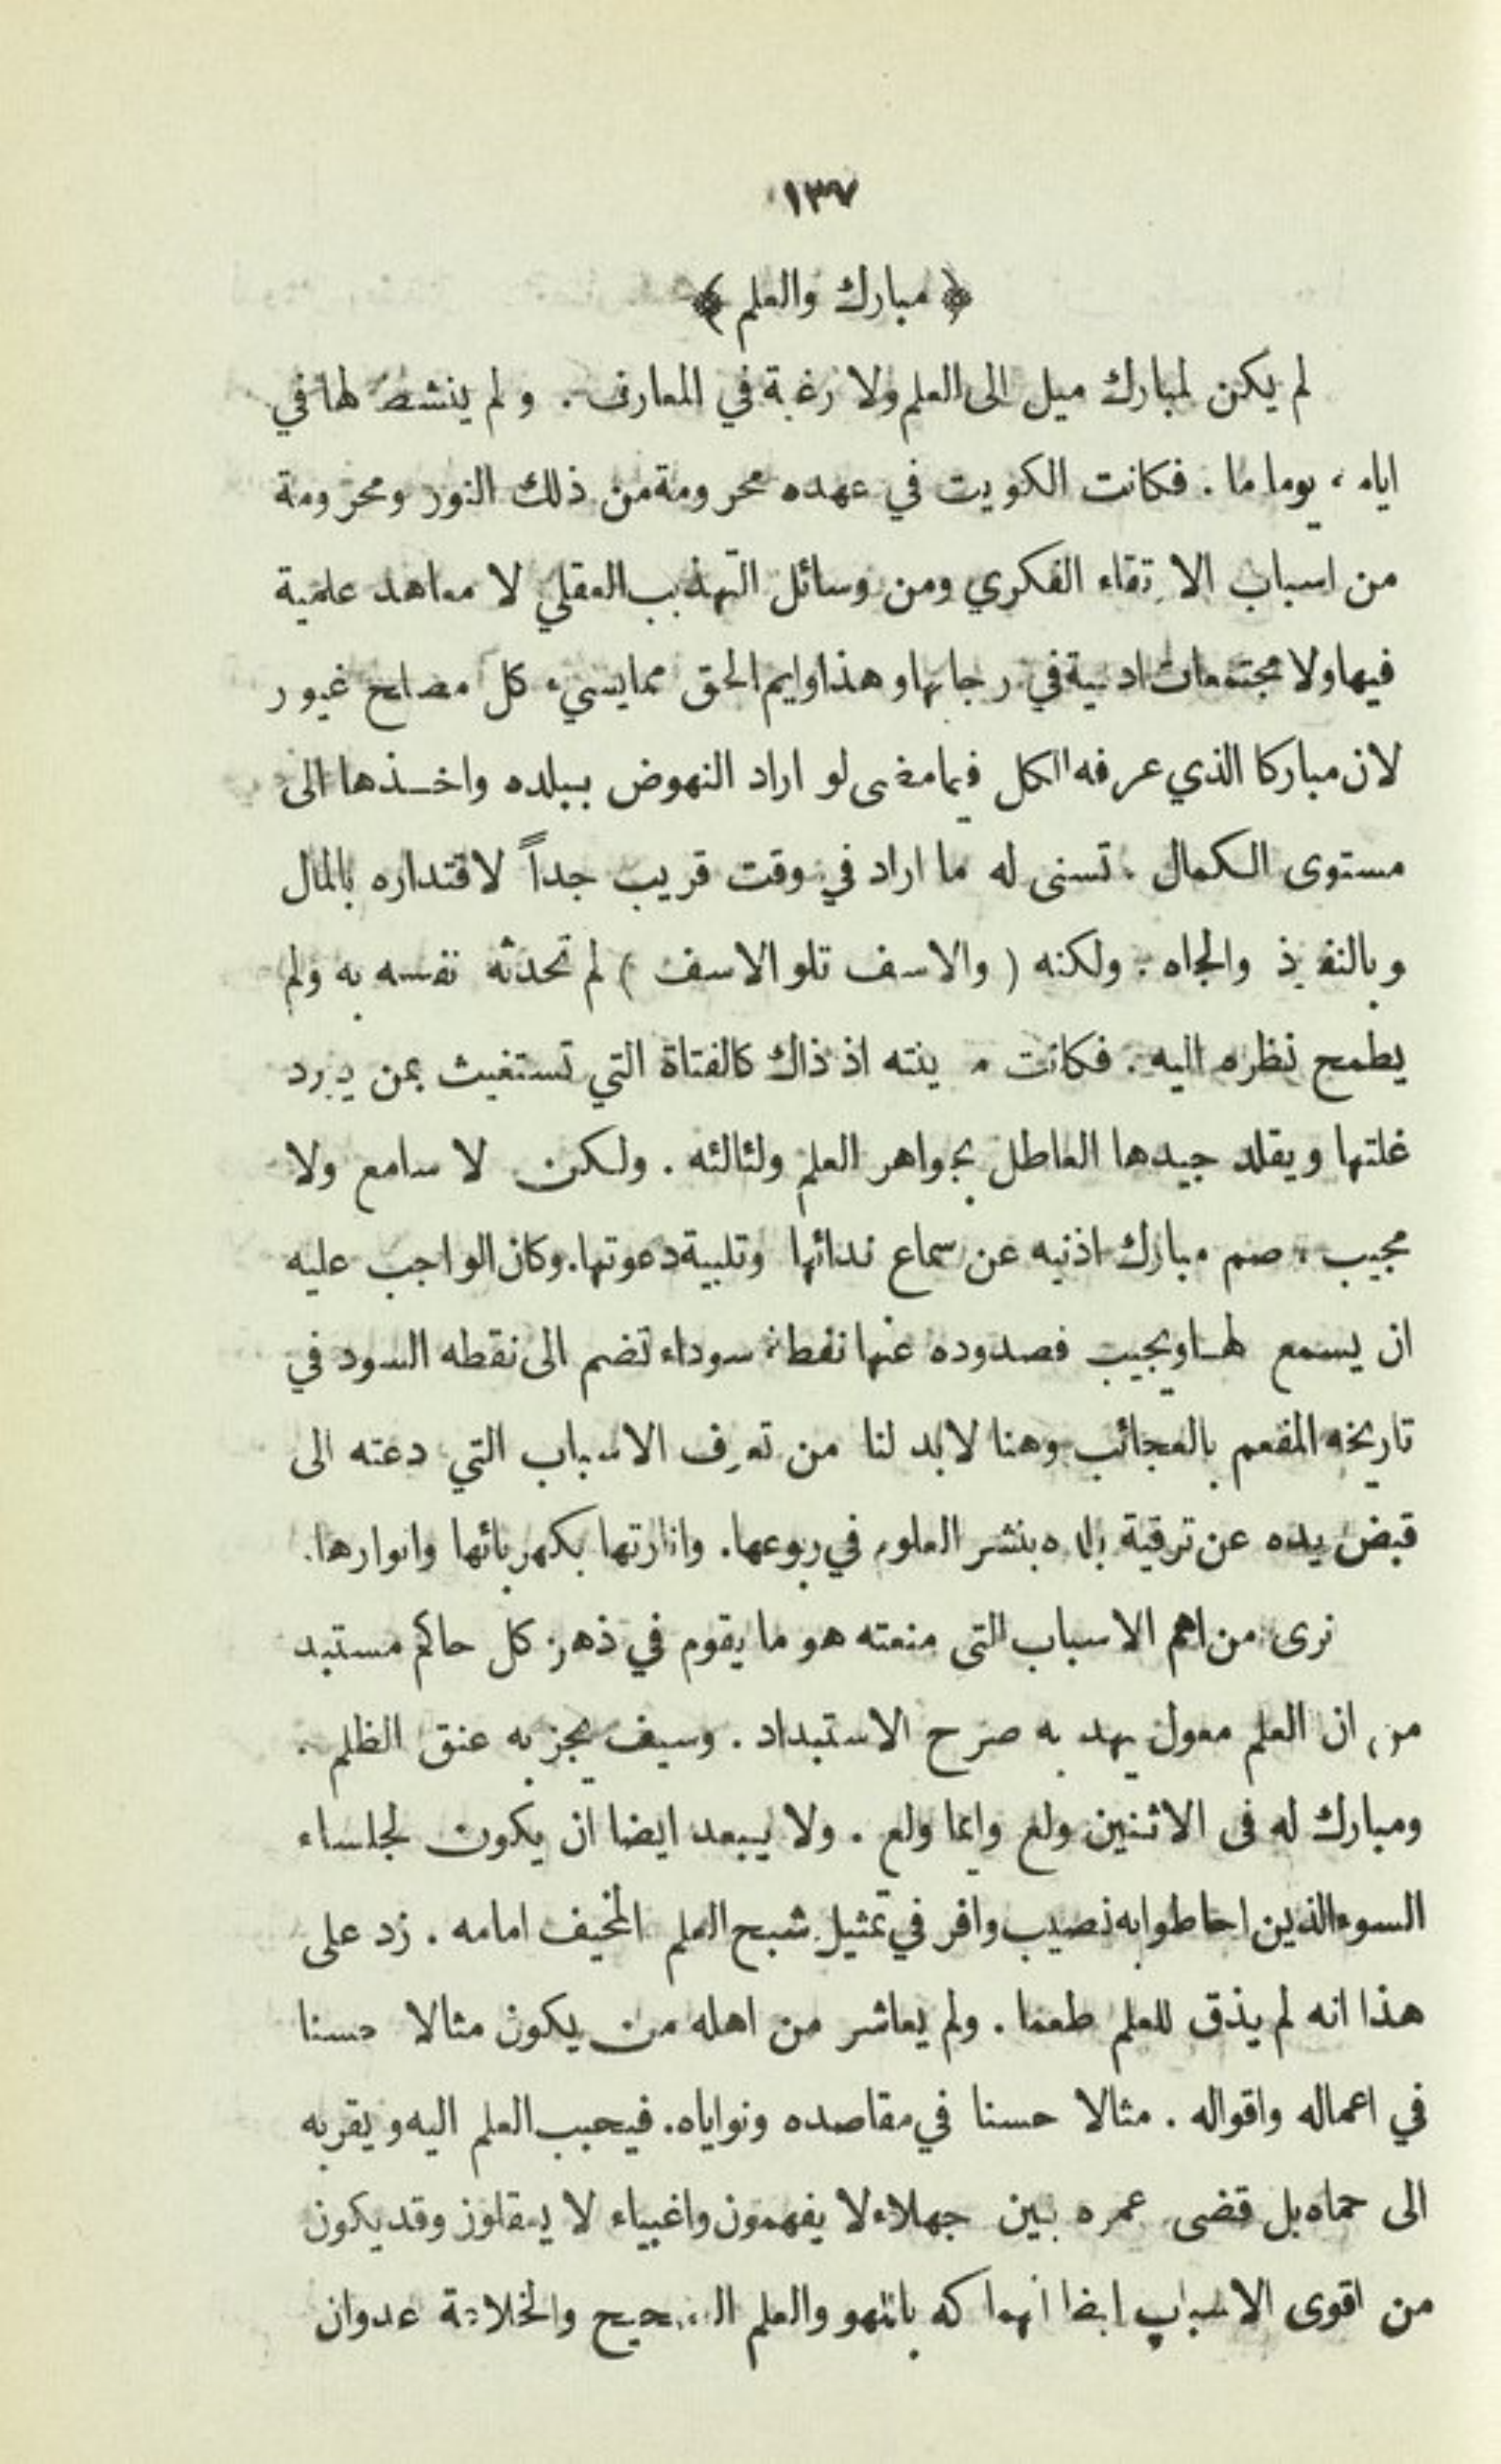 ١٣٧
﴿ مبارك والعلم ﴾
لم يكن لمبارك ميل الى العلم ولا رغبة في المعارف . ولم ينشط لها في
ايامه يوما ما . فكانت الكويت في عهده محرومة من ذلك النور ومحرومة
من اسباب الارتقاء الفكري ومن وسائل التهذيب العقلي لا معاهد علمية
فيها ولا مجتمعات ادبية في رجابها وهذا وايم الحق مما يسيء كل مصلح غيور
لان مباركا الذي عرفه الكل فيما مضى لو اراد النهوض ببلده واخذها الى
مستوى الكمال . تسنى له ما اراد في وقت قريب جداً لاقتداره بالمال
وبالنفوذ والجاه . ولكنه ( والاسف تلو الاسف ) لم تحدثه نفسه به ولم
يطمح نظره اليه . فكانت مدينته اذ ذاك كالفتاة التي تستغيث بمن يبرد
غلتها ويقلد جيدها العاطل بجواهر العلم ولئالئه . ولكن لا سامع ولا
مجيب ، صم مبارك اذنيه عن سماع ندائها وتلبية دعوتها. وكان الواجب عليه
ان يسمع لها ويجيب فصدوده عنها نقطة سوداء تضم الى نقطه السود في
تاريخه المفعم بالعجائب وهنا لابد لنا من تعرف الاسباب التي دعته الى
قبض يده عن ترقية بلده بنشر العلوم في ربوعها. وانارتها بكهربائها وانوارها.
نرى من اهم الاسباب التى منعته هو ما يقوم في ذهن كل حاكم مستبد
من ان العلم معول يهد به صرح الاستبداد . وسيف يجز به عنق الظلم .
ومبارك له فى الاثنين ولع وايما ولع . ولا يبعد ايضا ان يكون لجلساء
السوء الذين احاطوا به نصيب وافر في تمثيل شبح العلم المخيف امامه . زد على
هذا انه لم يذق للعلم طعما . ولم يعاشر من اهله من يكون مثالا حسنا
في اعماله واقواله . مثالا حسنا في مقاصده ونواياه. فيحبب العلم اليه ويقربه
الى حماه بل قضى عمره بين جهلاء لا يفهمون واغبياء لا يعقلون وقد يكون
من اقوى الاسباب ايضا انهماكه باللهو والعلم الصحيح والخلاعة عدوان